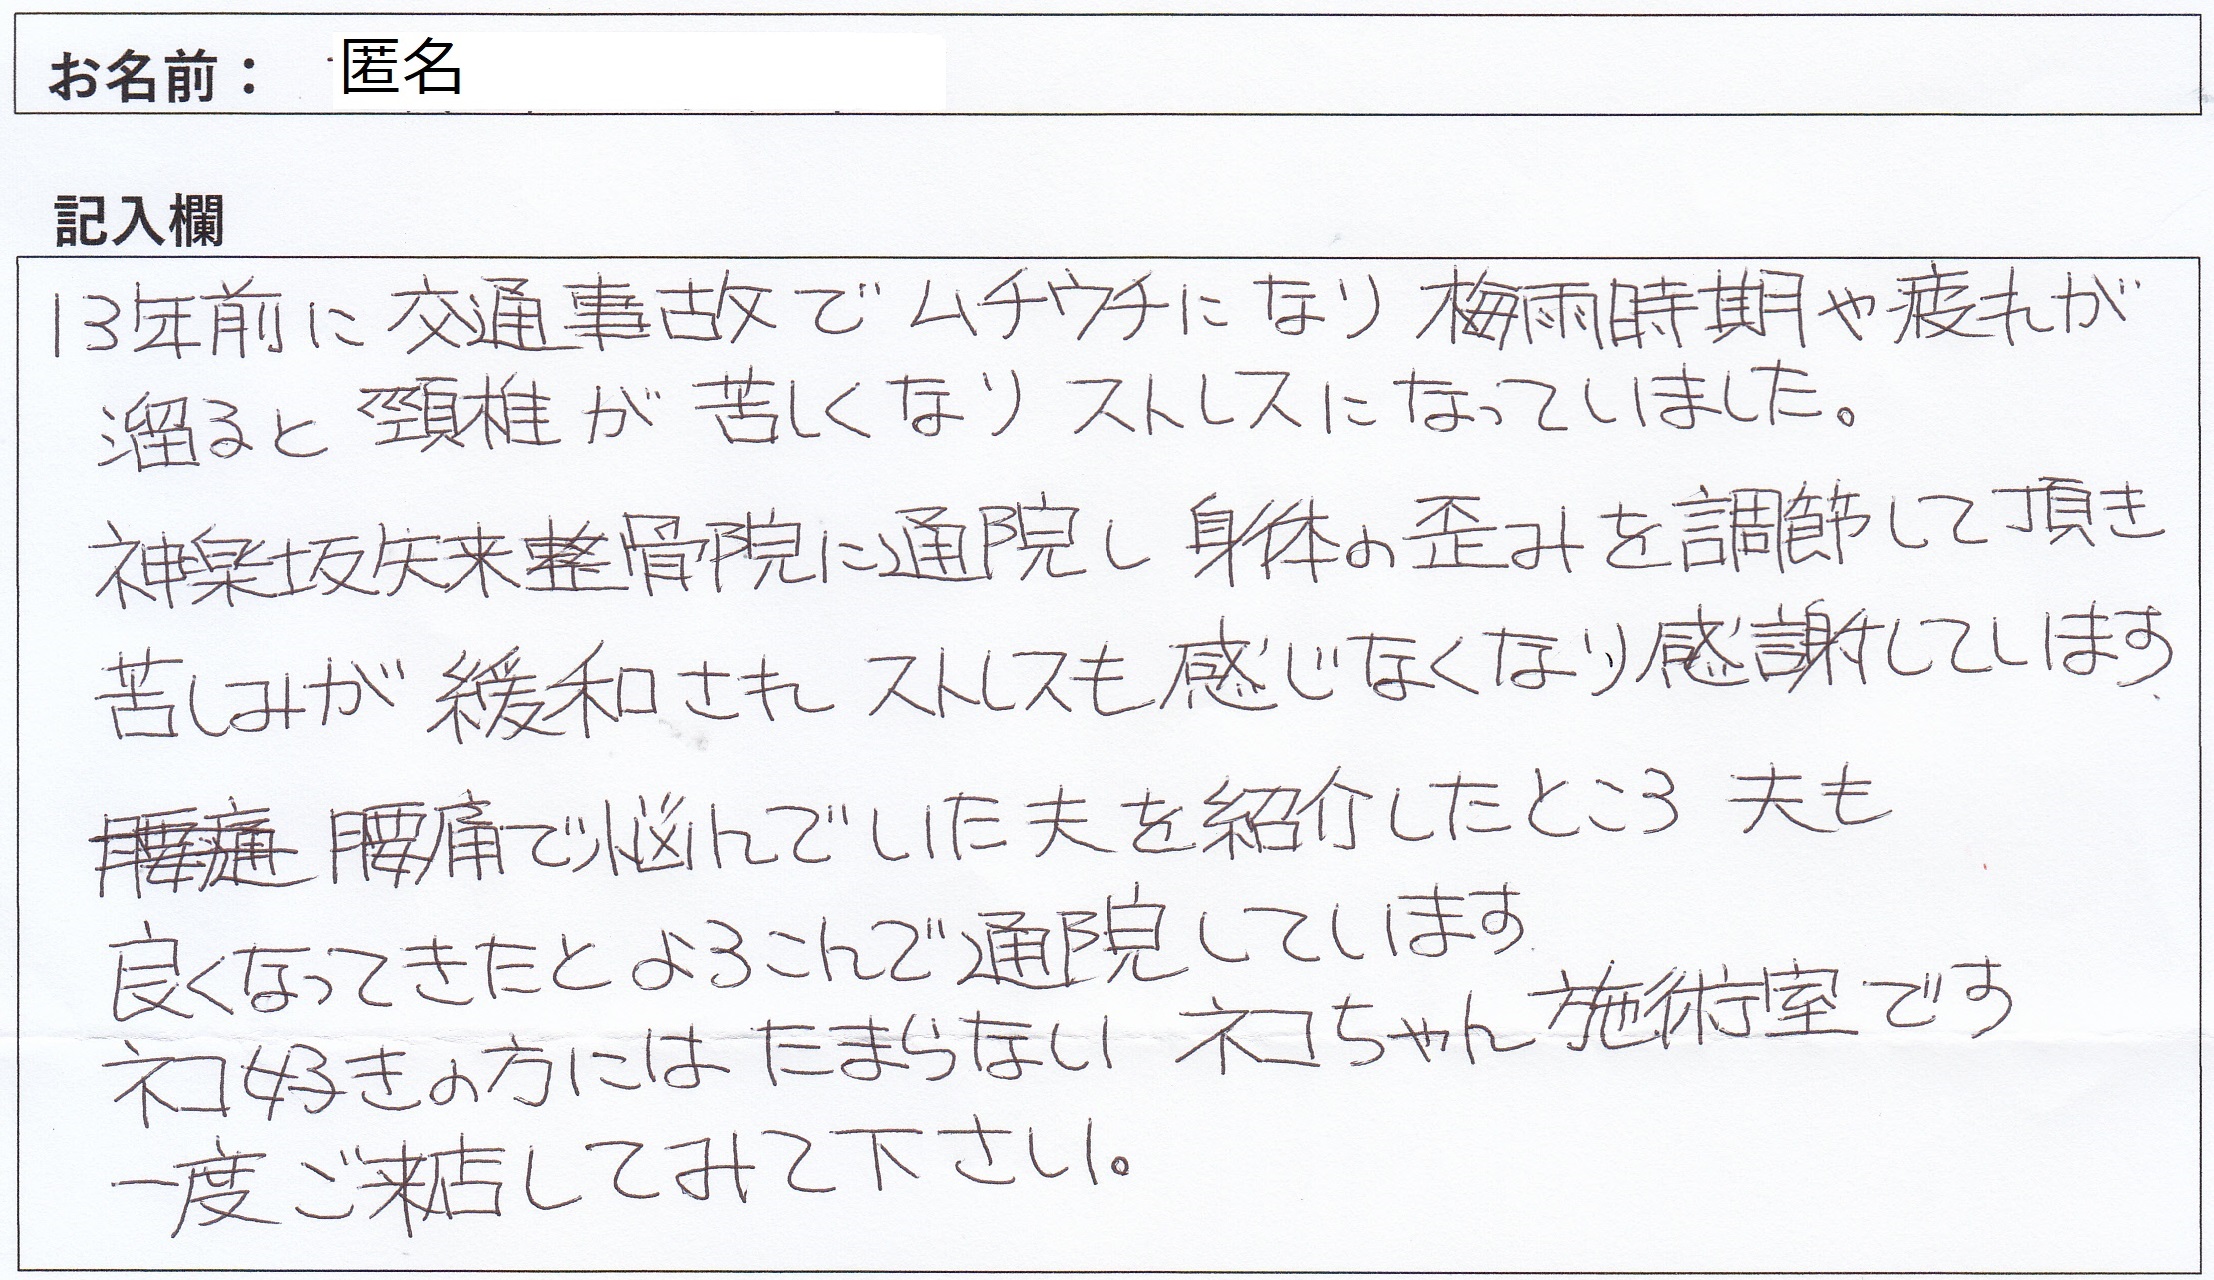 お名前： 匿名
記入欄
13年前に交通事故でムチウチになり梅雨時期や疲れが
溜ると頸椎が苦しくなりストレスになっていました。
神楽坂矢来整骨院に通院し身体の歪みを調節して頂き
苦しみが緩和されストレスも感じなくなり感謝しています
腰痛 腰痛で悩んでいた夫を紹介したところ 夫も
良くなってきたとよろこんで通院しています
ネコ好きの方にはたまらない ネコちゃん施術室です
一度ご来店してみて下さい。